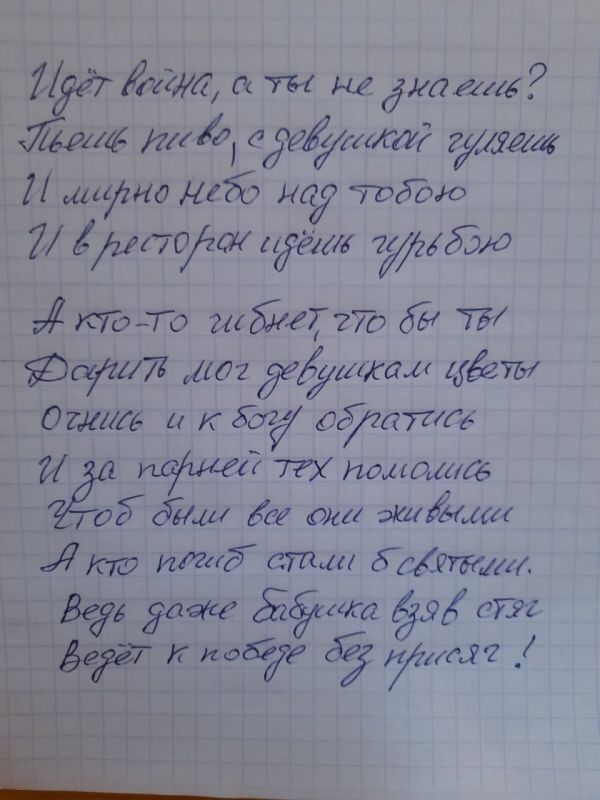 Идёт война, а ты не знаешь?
Пьешь пиво, с девушкой гуляешь
И мирно небо над тобою
И в ресторан идёшь гурьбою
А кто-то гибнет, что бы ты
Дарить мог девушкам цветы
Очнись и к богу обратись
И за парней тех помолись
Чтоб были все они живыми
А кто погиб стали б святыми.
Ведь даже бабушка взяв стяг
Ведёт к победе без присяг!